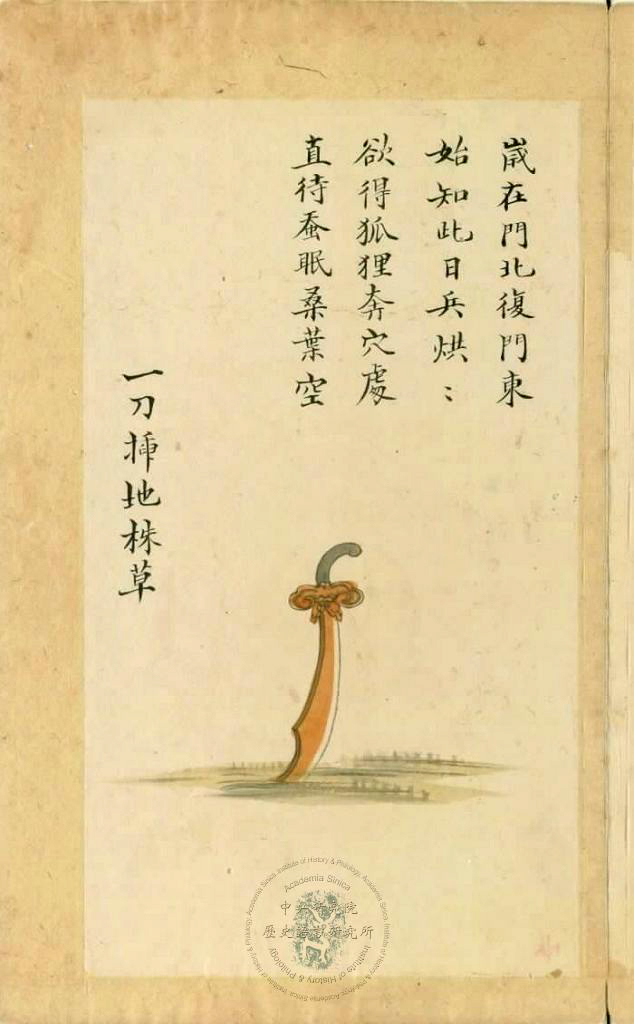 歳在門北復門東
始知此日兵烘〻
欲得狐狸奔穴處
直待蚕眠桑葉空
一刀揷地株草
Academia Sinica
Institute of History & Philology
中央研究院
歷史語言研究所